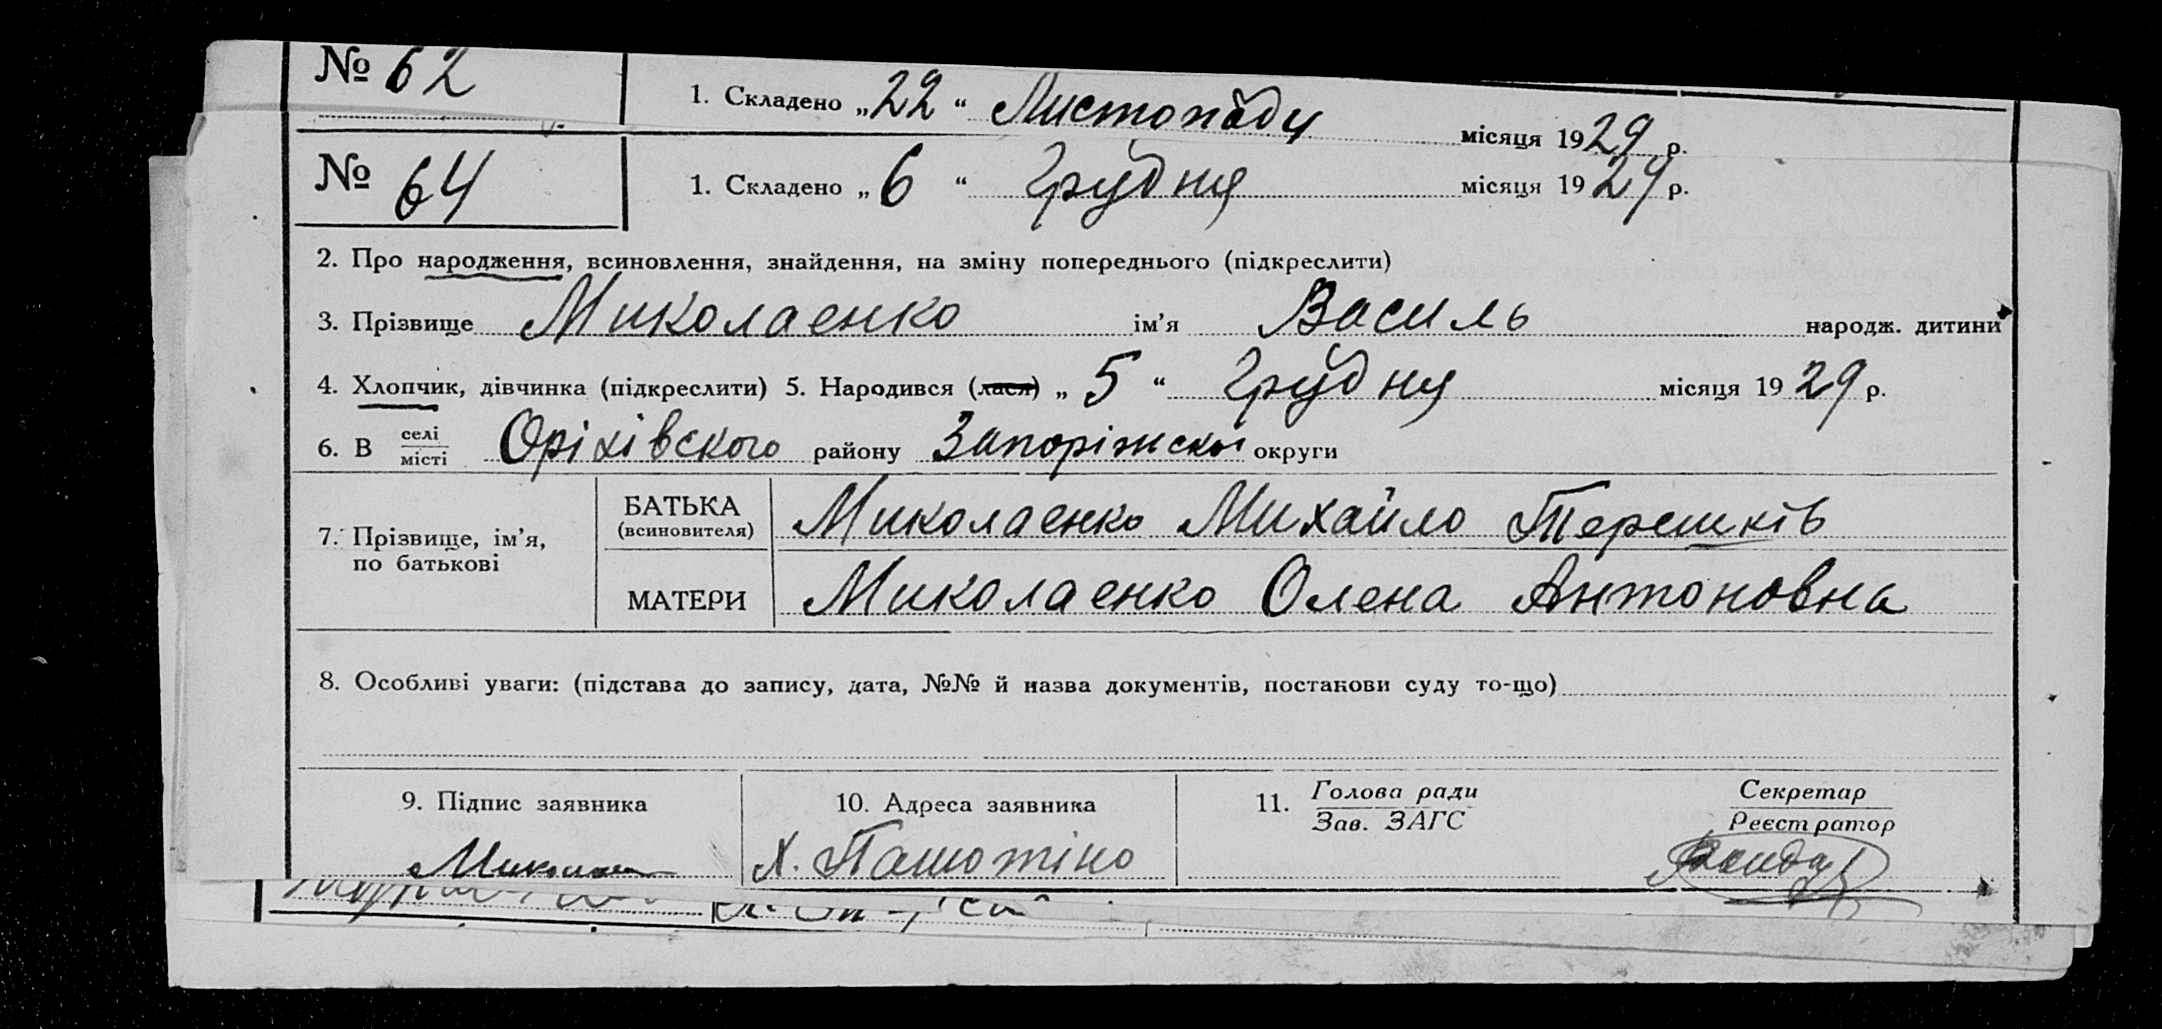 № 62
1. Складено „22“ Листопаду місяця 1929 р.
№ 64
1. Складено „6“ Грудня місяця 1929 р.
2. Про народження, всиновлення, знайдення, на зміну попереднього (підкреслити)
3. Прізвище Миколаенко ім’я Василь народж. дитини
4. Хлопчик, дівчинка (підкреслити) 5. Народився (лася) „5“ Грудня місяця 1929 р.
6. В селі місті Оріхівского району Запоріжскої округи
7. Прізвище, ім’я, по батькові
БАТЬКА (всиновителя) Миколаенко Михайло Терешків
МАТЕРИ Миколаенко Олена Антоновна
8. Особливі уваги: (підстава до запису, дата, №№ й назва документів, постанови суду то-що)
9. Підпис заявника
10. Адреса заявника
Х.
11. Голова ради
Зав. ЗАГС
Секретар
Реєстратор